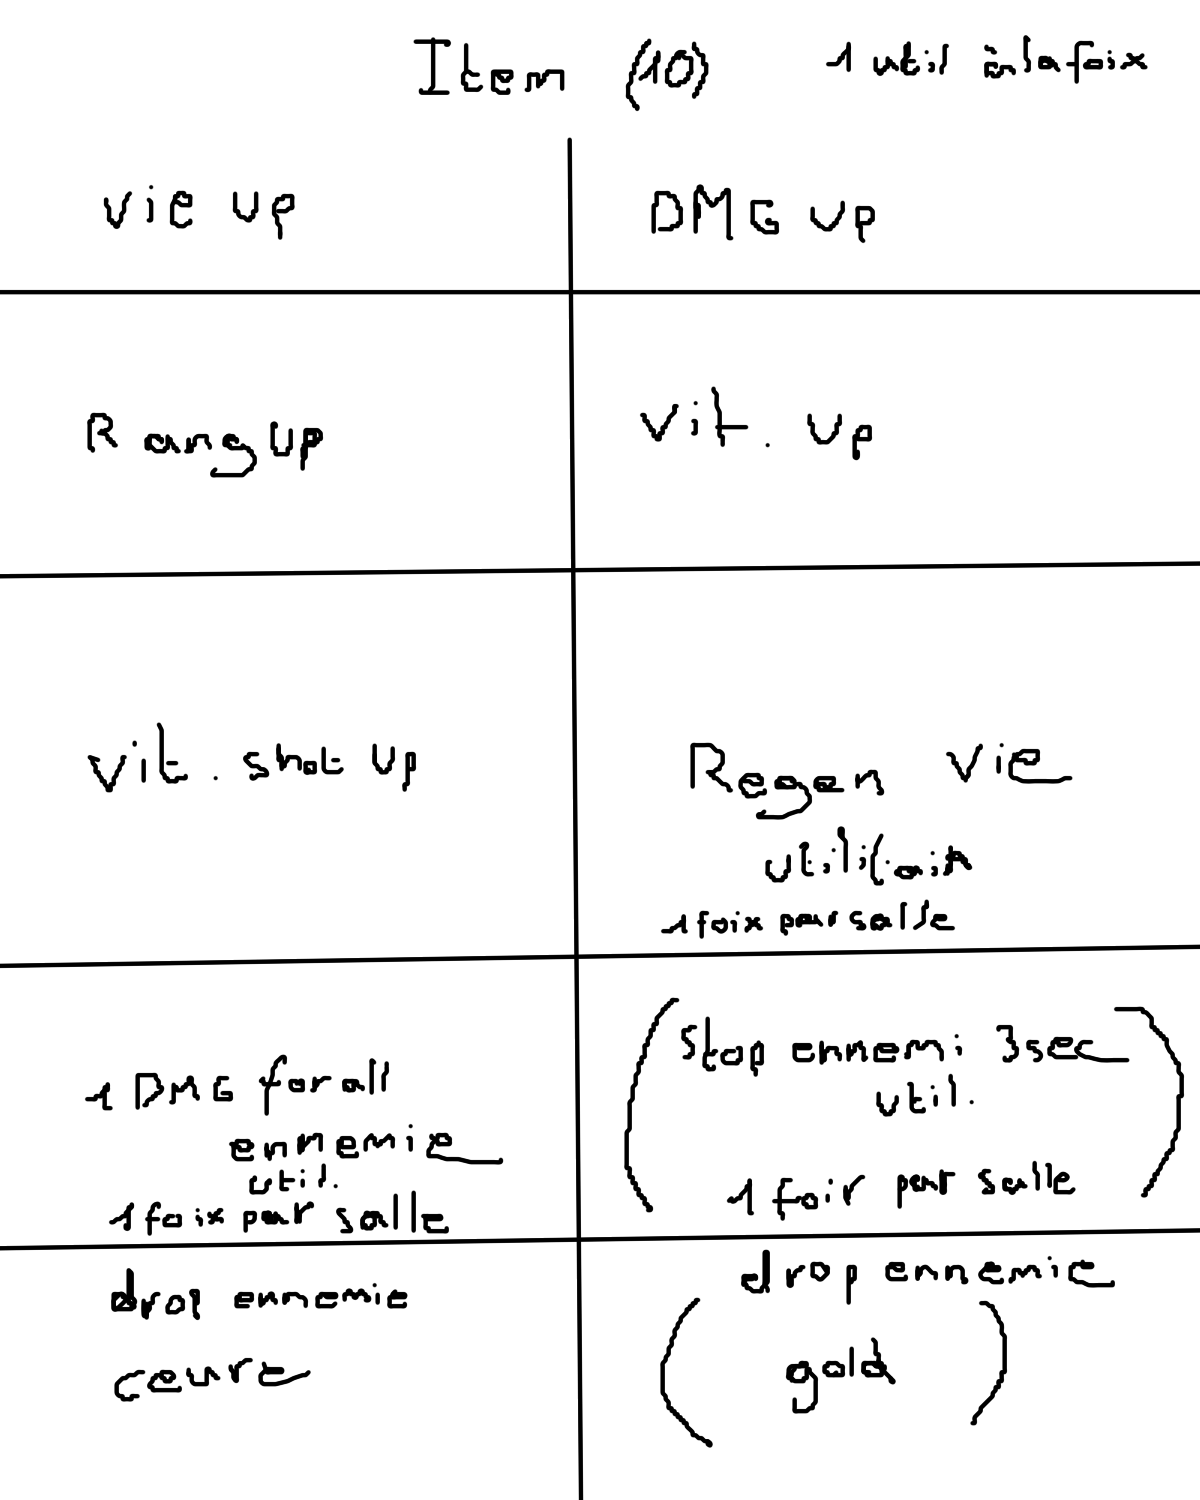 Item (10) 1 util à la foix
vie up
DMG up
Rang up
vit. up
vit. shot up
Regen vie
1 foix par salle
1 DMG for all
ennemie
util.
1 foix par salle
(stop ennemi 3sec
util.
1 foix par salle)
drop ennemie
ceure
drop ennemie
(gold)